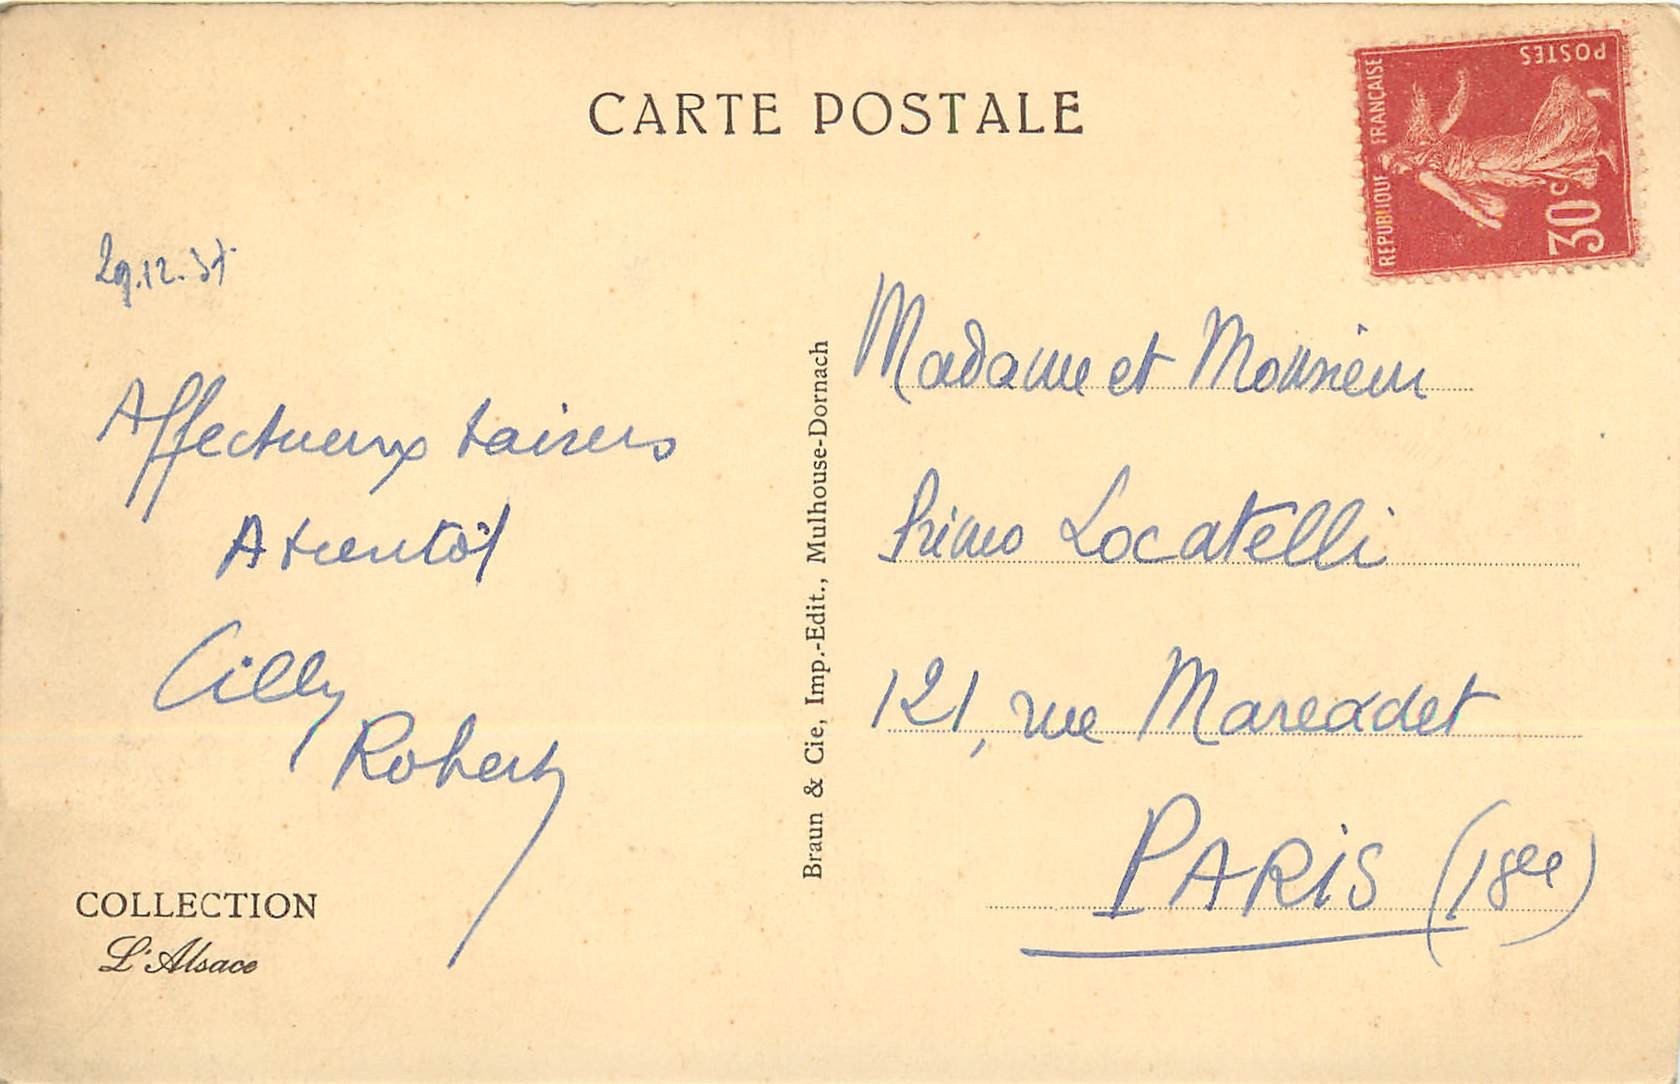 CARTE POSTALE
REPUBLIQUE FRANÇAISE
POSTES
30c
29.12.37
Affectueux baisers
A bientôt
Cilly
Robert
COLLECTION
L'Alsace
Braun & Cie, Imp.-Edit., Mulhouse-Dornach
Madame et Monsieur
Primo Locatelli
121, rue Marcadet
PARIS (18ee)